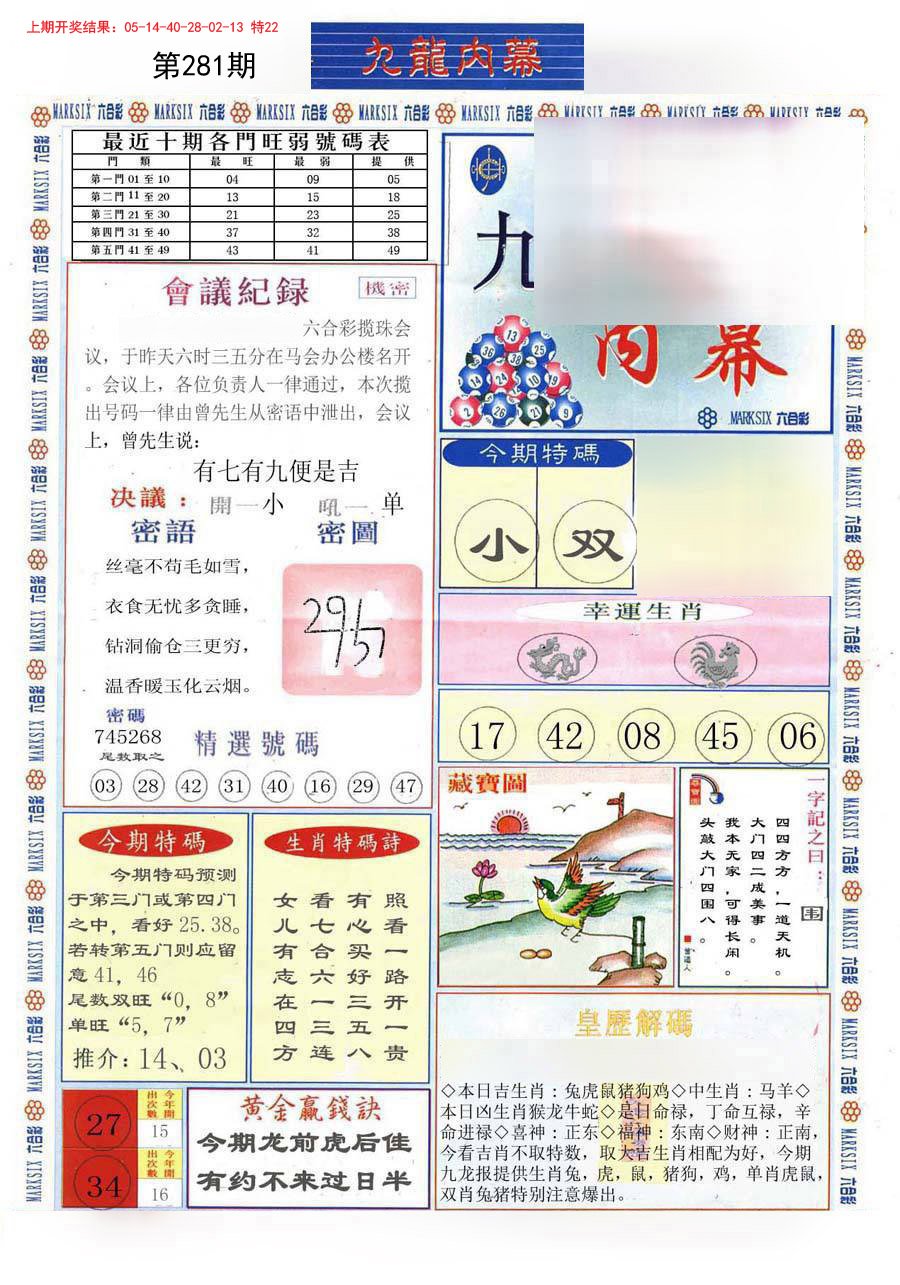 上期开奖结果：05-14-40-28-02-13 特22
第281期
九龍内幕
MARKSIX 六合彩 MARKSIX 六合彩 MARKSIX 六合彩 MARKSIX 六合彩 MARKSIX 六合彩 MARKSIX 六合彩 MARKSIX 六合彩 MARKSIX 六合彩
最近十期各門旺弱號碼表
門類 最旺 最弱 提供
第一門 01 至 10 04 09 05
第二門 11 至 20 13 15 18
第三門 21 至 30 21 23 25
第四門 31 至 40 37 32 38
第五門 41 至 49 43 41 49
會議紀録 機密
六合彩揽珠会
议，于昨天六时三五分在马会办公楼名开
。会议上，各位负责人一律通过，本次揽
出号码一律由曾先生从密语中泄出，会议
上，曾先生说：
有七有九便是吉
决議：開一小 吼一 单
密語 密圖
丝毫不苟毛如雪，
衣食无忧多贪睡，
钻洞偷仓三更穷，
温香暖玉化云烟。
密碼
745268
尾数取之
精選號碼
03 28 42 31 40 16 29 47
九
内幕
13
36 38 25
14 24 10 19
2 26 21 9
MARKSIX 六合彩
今期特碼
小 双
幸運生肖
17 42 08 45 06
藏寶圖
一字記之曰：
囯
四四方方，一道天机。
大门四二成美事。
我本无家，可得长闲。
头敲大门四围八。
曾道人
今期特碼
今期特码预测
于第三门或第四门
之中，看好 25.38。
若转第五门则应留
意 41，46
尾数双旺“0，8”
单旺“5，7”
推介：14、03
生肖特碼詩
女看有照
儿七心看
有合买一
志六好路
在一三开
四三五一
方连八贵
27 今年開出次數 15
34 今年開出次數 16
黄金赢錢訣
今期龙前虎后佳
有约不来过日半
皇歷解碼
◇本日吉生肖：兔虎鼠猪狗鸡◇中生肖：马羊◇
本日凶生肖猴龙牛蛇◇是日命禄，丁命互禄，辛
命进禄◇喜神：正东◇福神：东南◇财神：正南，
今看吉肖不取特数，取大吉生肖相配为好，今期
九龙报提供生肖兔，虎，鼠，猪狗，鸡，单肖虎鼠，
双肖兔猪特别注意爆出。